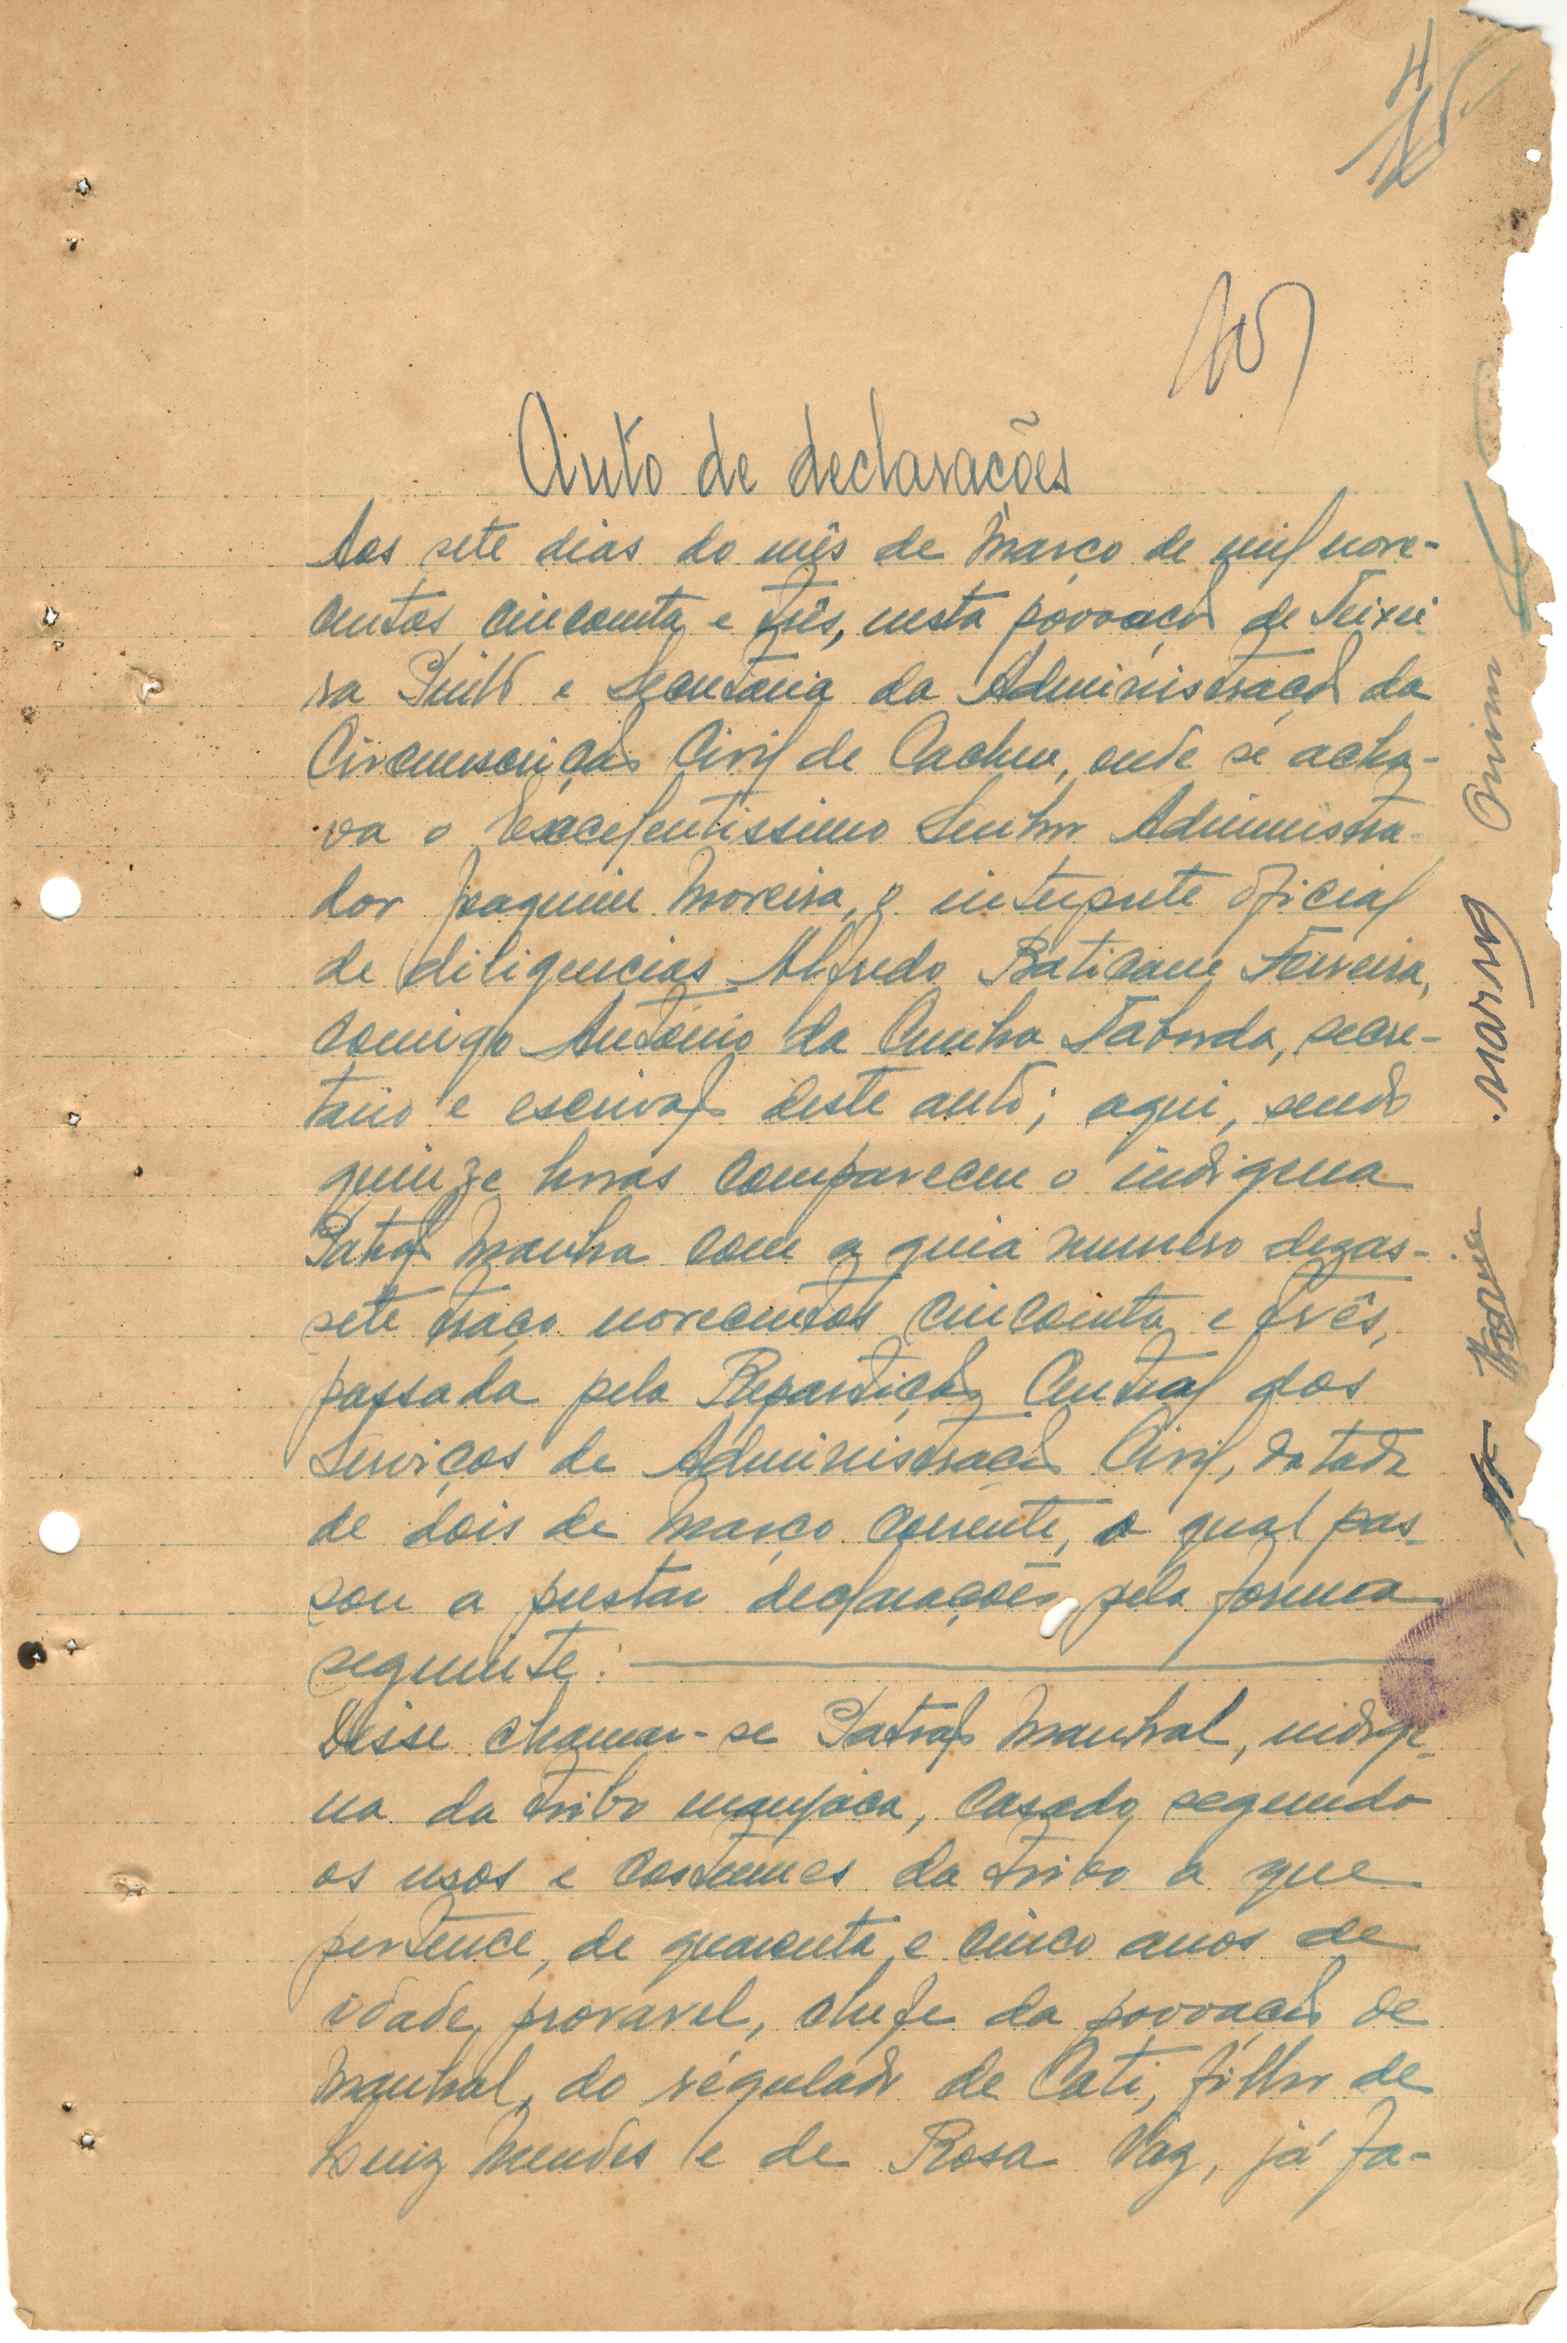 4
Auto de declarações
Aos sete dias do mês de Março de mil nove-
centos cincoenta e três, nesta povoação de Teixei
ra Pinto e Secretaria da Administração da
Circunscrição Civil de Cacheu, onde se acha-
va o Excelentissimo Senhor Administra-
dor Joaquim Moreira, o interprete oficial
de diligencias Alfredo Baticane Ferreira,
comigo António da Cunha Taborda, secre-
tario e escrivão deste auto; aqui, sendo
quinze horas compareceu o indigena
Patrão Manhra com a guia numero dezas-
sete traço novecentos cincoenta e três,
passada pela Repartição Central dos
Serviços de Administração Civil, datada
de dois de Março corrente, o qual pas-
sou a prestar declarações pela forma
seguinte:
Disse chamar-se Patrão Manhral, indige-
na da tribo manjaca, casado segundo
os usos e costumes da tribo a que
pertence, de quarenta e cinco anos de
idade provavel, chefe da povoação de
Manhral, do regulado de Cati, filho de
Luiz Mendes e de Rosa Vaz, já fa-